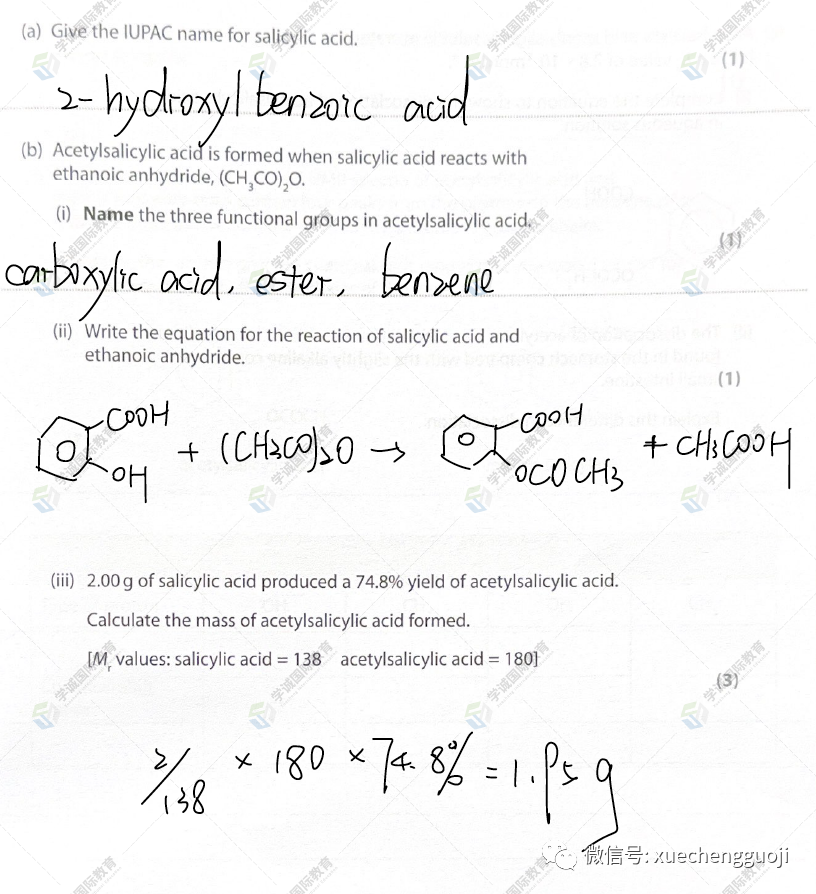 (a) Give the IUPAC name for salicylic acid.
(1)
2-hydroxyl benzoic acid
(b) Acetylsalicylic acid is formed when salicylic acid reacts with
ethanoic anhydride, (CH₃CO)₂O.
(i) Name the three functional groups in acetylsalicylic acid.
(1)
carboxylic acid, ester, benzene
(ii) Write the equation for the reaction of salicylic acid and
ethanoic anhydride.
(1)
COOH OH + (CH₃CO)₂O → COOH OCOCH₃ + CH₃COOH
(iii) 2.00 g of salicylic acid produced a 74.8% yield of acetylsalicylic acid.
Calculate the mass of acetylsalicylic acid formed.
[Mᵣ values: salicylic acid = 138 acetylsalicylic acid = 180]
(3)
2/138 × 180 × 74.8% = 1.95 g
微信号: xuechengguoji
学诚国际教育